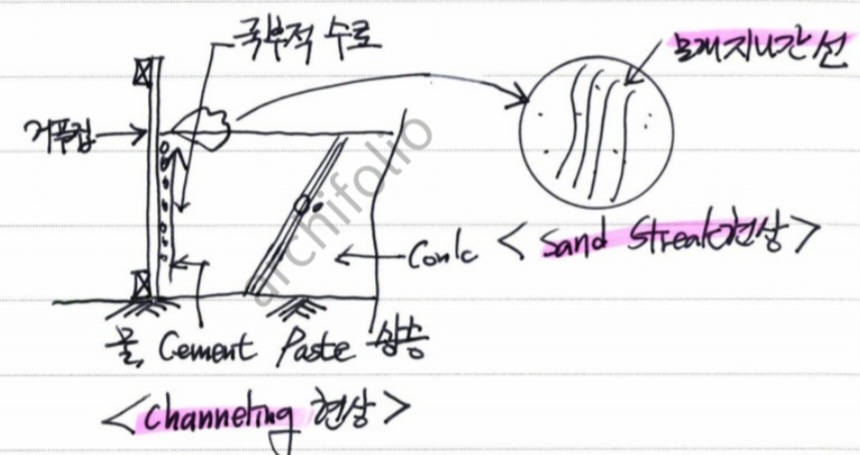 국부적 수로
모래 지나간 선
거푸집
Conc
< Sand Streak현상 >
물, Cement Paste 상승
< Channeling 현상 >
archifolio